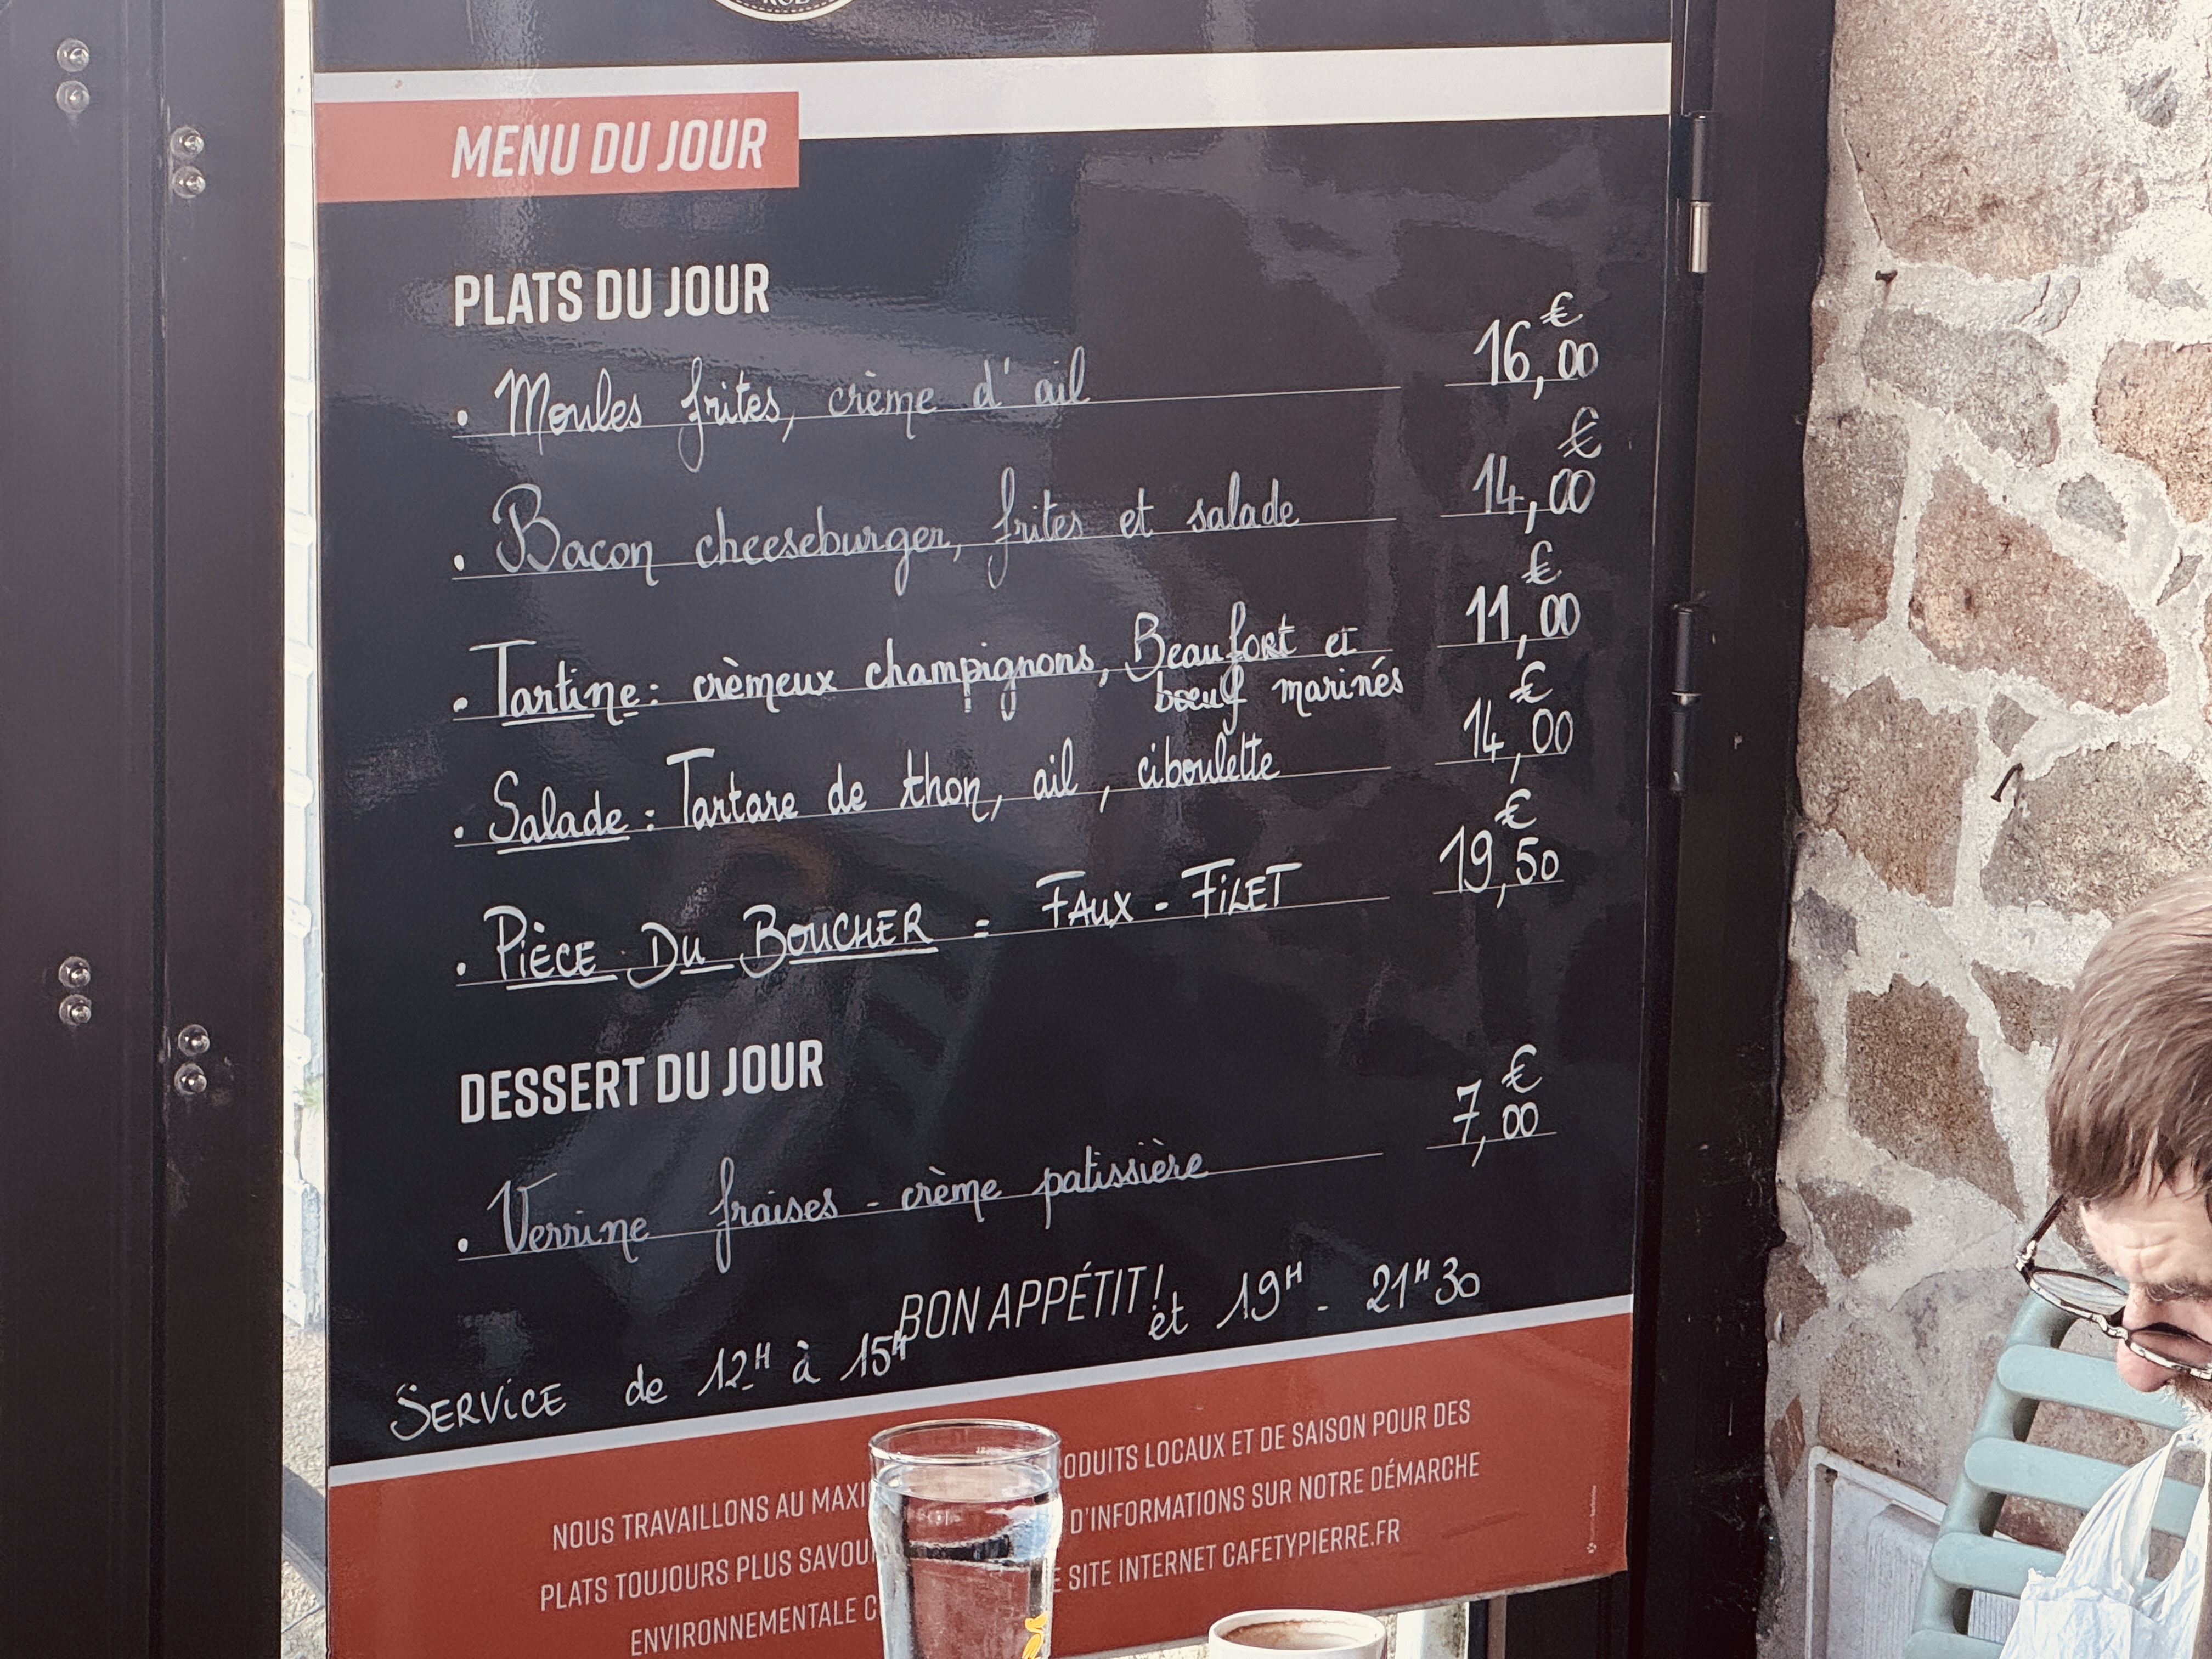 MENU DU JOUR
PLATS DU JOUR
. Moules frites, crème d'ail 16,00 €
. Bacon cheeseburger, frites et salade 14,00 €
. Tartine : crèmeux champignons, Beaufort et 11,00 €
boeuf marinés
. Salade : Tartare de thon, ail, ciboulette 14,00 €
. PIÈCE DU BOUCHER = FAUX - FILET 19,50 €
DESSERT DU JOUR
. Verrine fraises - crème patissière 7,00 €
BON APPÉTIT !
SERVICE de 12H à 15H et 19H - 21H30
NOUS TRAVAILLONS AU MAXI ODUITS LOCAUX ET DE SAISON POUR DES
PLATS TOUJOURS PLUS SAVOU D'INFORMATIONS SUR NOTRE DÉMARCHE
ENVIRONNEMENTALE C E SITE INTERNET CAFETYPIERRE.FR